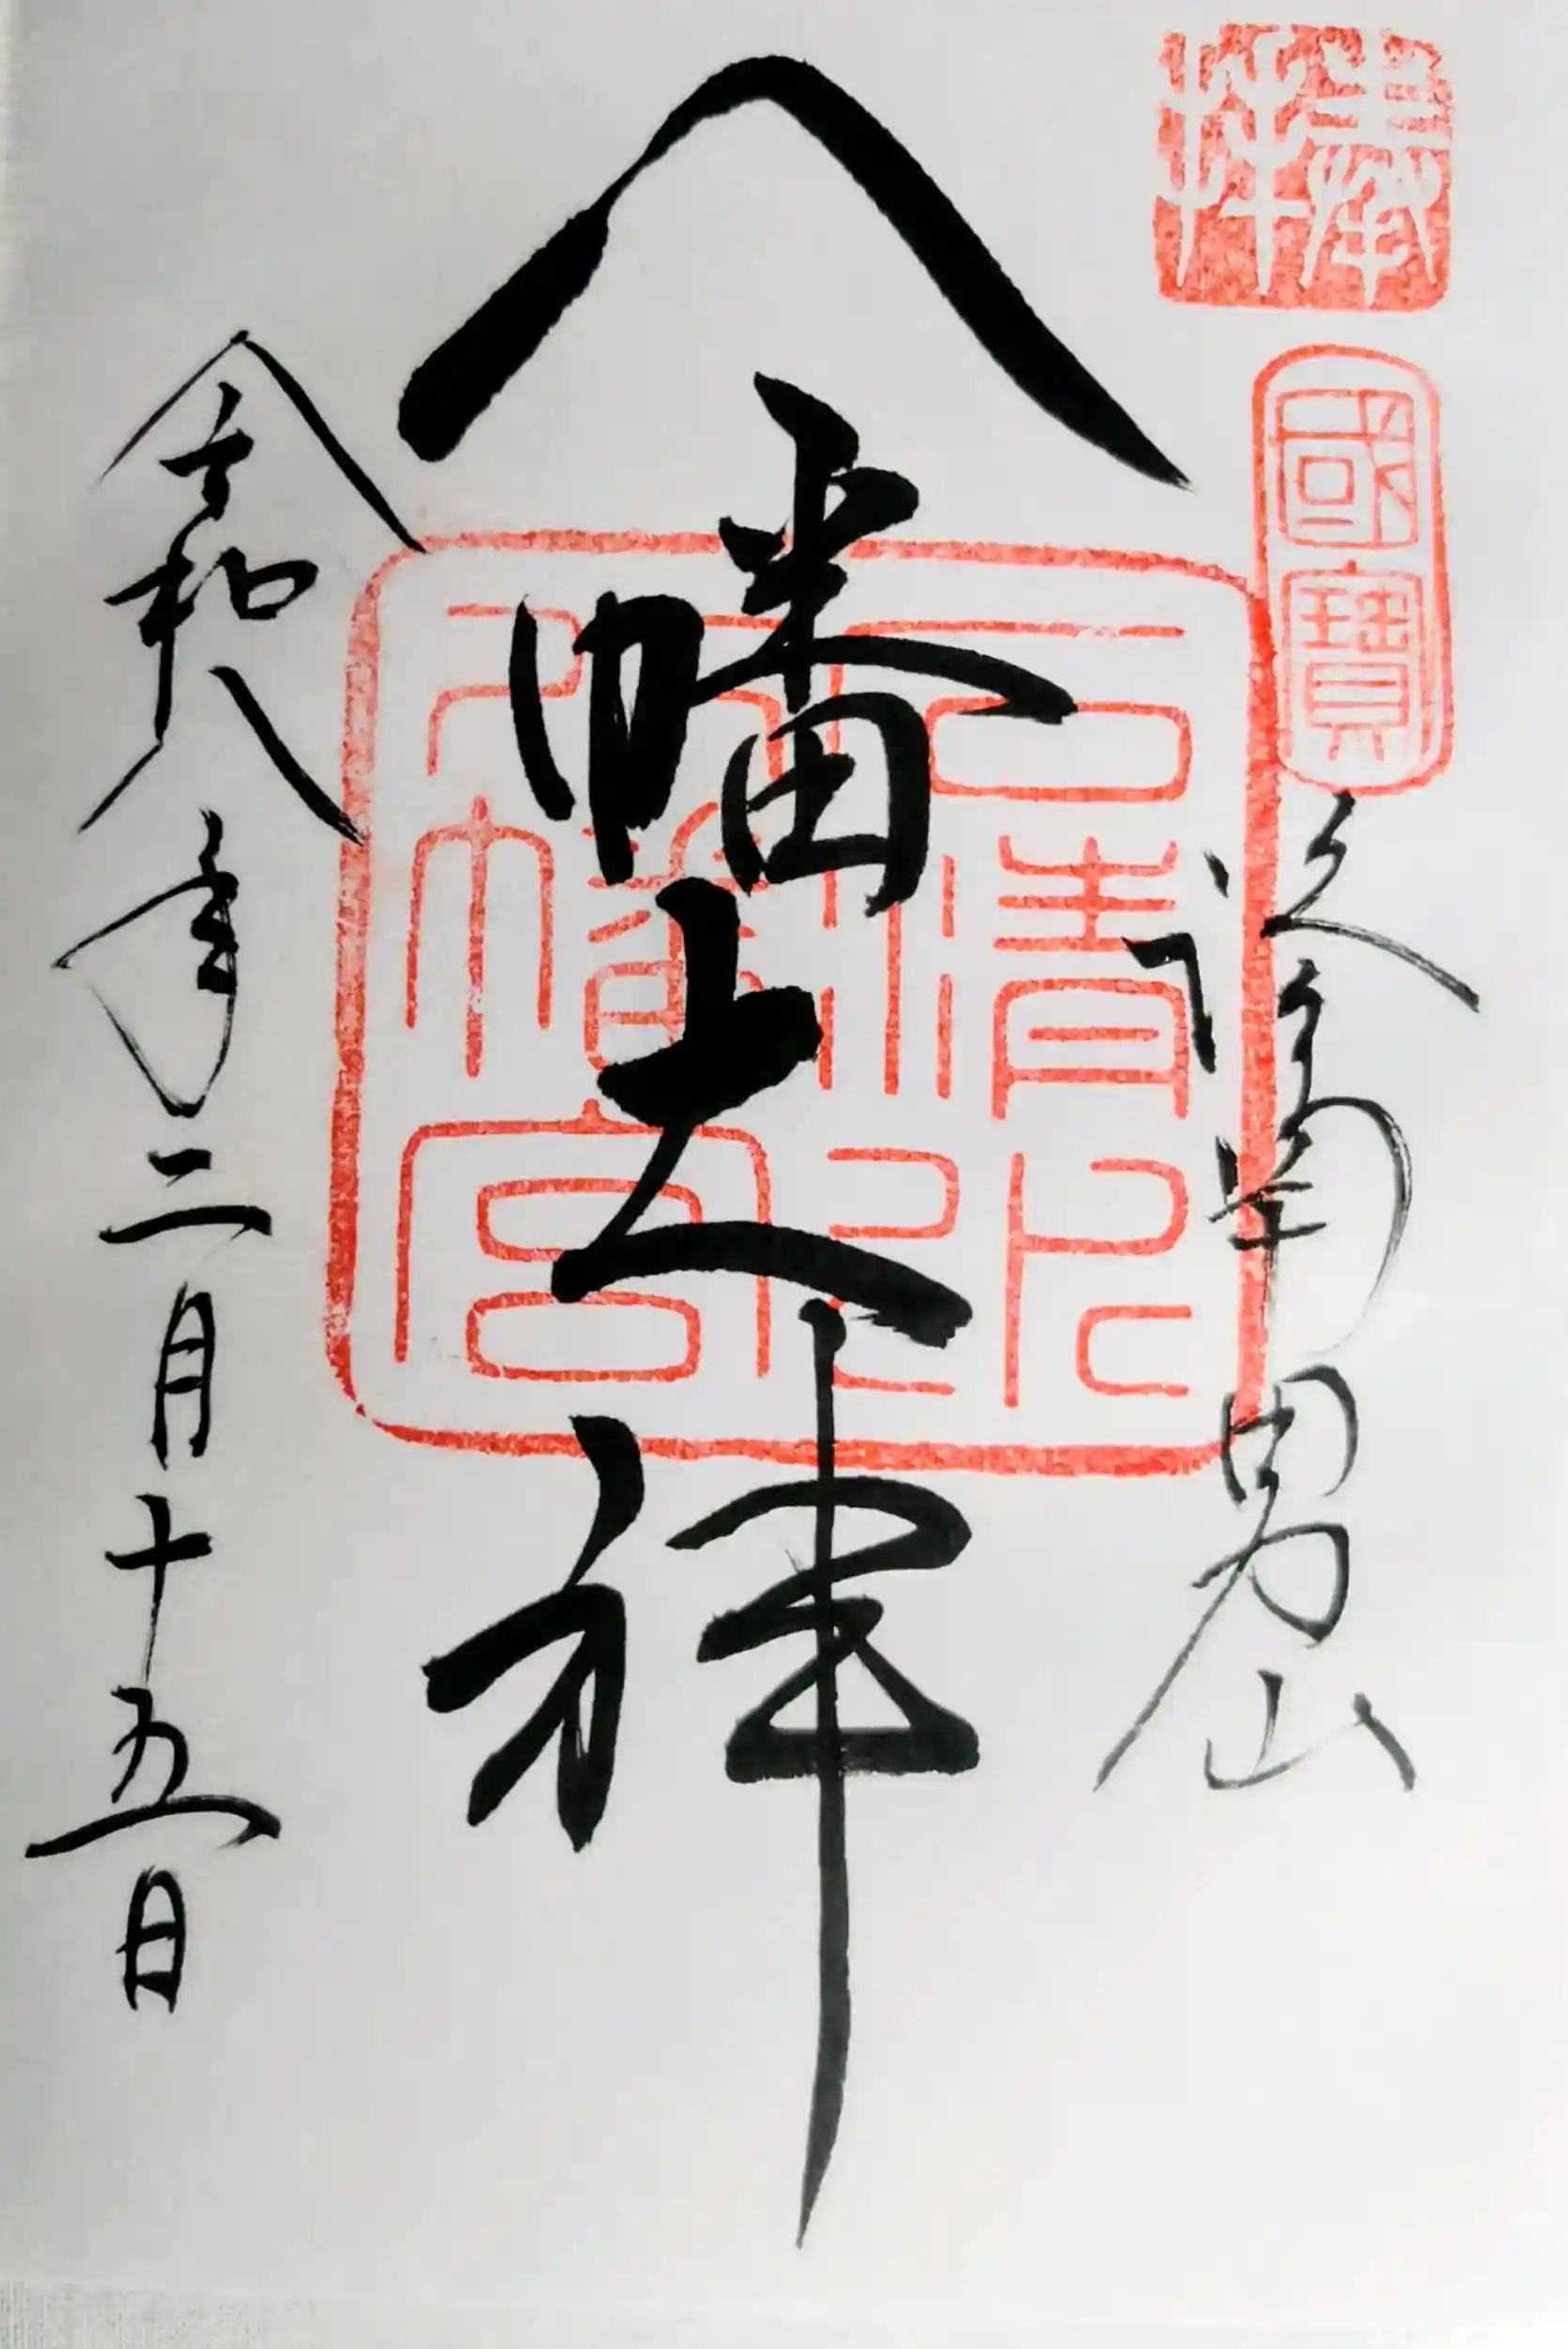 奉拝
國寶
洛南男山
八幡大神
石清水
八幡宮
令和八年二月十五日